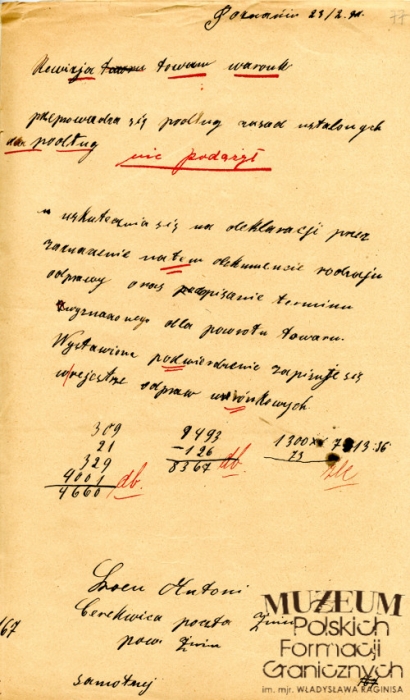 Poznań 23/2.
77
Rewizja towaru warunk
przeprowadza się podług zasad ustalonych
podług
nie podążył
uskutecznia się na deklaracji przez
zaznaczenie na tem dokumencie rodzaju
odprawy oraz podpisanie terminu
wyznaczonego dla powrotu towaru.
Wystawione podwierdzenie zapisuje się
w rejestrze odpraw warunkowych.
309
21
329
4001
4660
db.
8493
-126
8367
db.
1300
73
13:36
źle
Antoni
Cerekwica poczta Żnin
pow. Żnin
167
samotny
MUZEUM
Polskich
Formacji
Granicznych
im. mjr. WŁADYSŁAWA RAGINISA